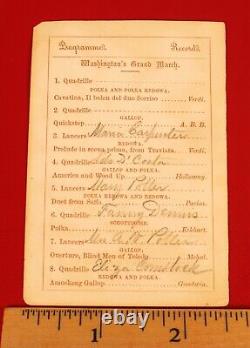 Programme. Record.
Washington's Grand March.
1. Quadrille
POLKA AND POLKA REDOWA.
Cavatina, Il balen del suo Sorriso Verdi.
2. Quadrille
GALLOP.
Quickstep, A. B. B.
3. Lanciers Maria Carpenter
REDOWA.
Prelude in scena primo, from Traviata. Verdi.
4. Quadrille D'Costa
GALLOP AND POLKA.
America and Wood Up, Holloway.
5. Lanciers Mary Potter
POLKA REDOWA AND REDOWA.
Duet from
6. Quadrille Fanny Dennis
SCHOTTISCHE.
Polka,
7. Lanciers Potter
GALLOP.
Overture, Blind Men of Toledo, Mehul.
8. Quadrille Eliza Comstock
REDOWA AND POLKA.
Amoskeag Gallop,
1 2 3